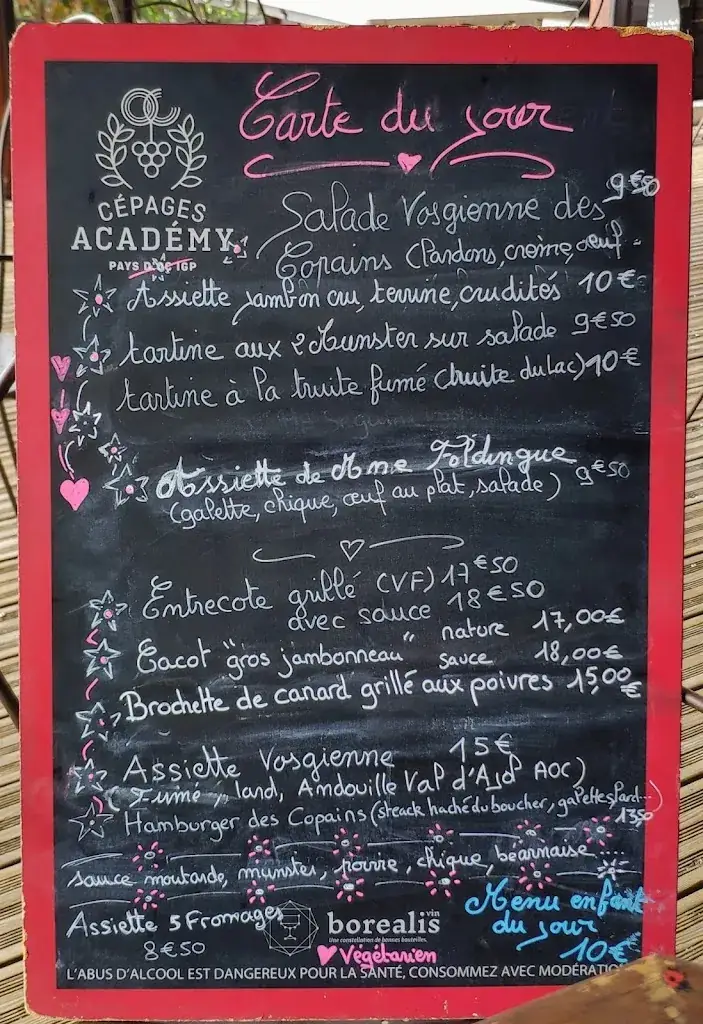 Carte du jour
CÉPAGES
ACADÉMY
PAYS D'OC IGP
Salade Vosgienne des 9€50
Copains (lardons, crème, œuf
Assiette jambon cru, terrine, crudités 10€
tartine aux 2 Munster sur salade 9€50
tartine à la truite fumé (truite du Lac) 10€
Assiette de Mme Foldingue 9€50
(galette, chique, œuf au plat, salade)
Entrecote grillé (VF) 17€50
avec sauce 18€50
Cacot "gros jambonneau" nature 17,00€
sauce 18,00€
Brochette de canard grillé aux poivres 15,00€
Assiette Vosgienne 15€
(Fumé, land, Andouille Val d'AJol AOC)
Hamburger des Copains (steack haché du boucher, galettes, lard...
13,50
sauce moutarde, munster, poivre, chique, béarnaise ....
Assiette 5 Fromages
8€50
borealis vin
Une constellation de bonnes bouteilles.
Végétarien
Menu enfant
du jour
10€
L'ABUS D'ALCOOL EST DANGEREUX POUR LA SANTÉ, CONSOMMEZ AVEC MODÉRATIO